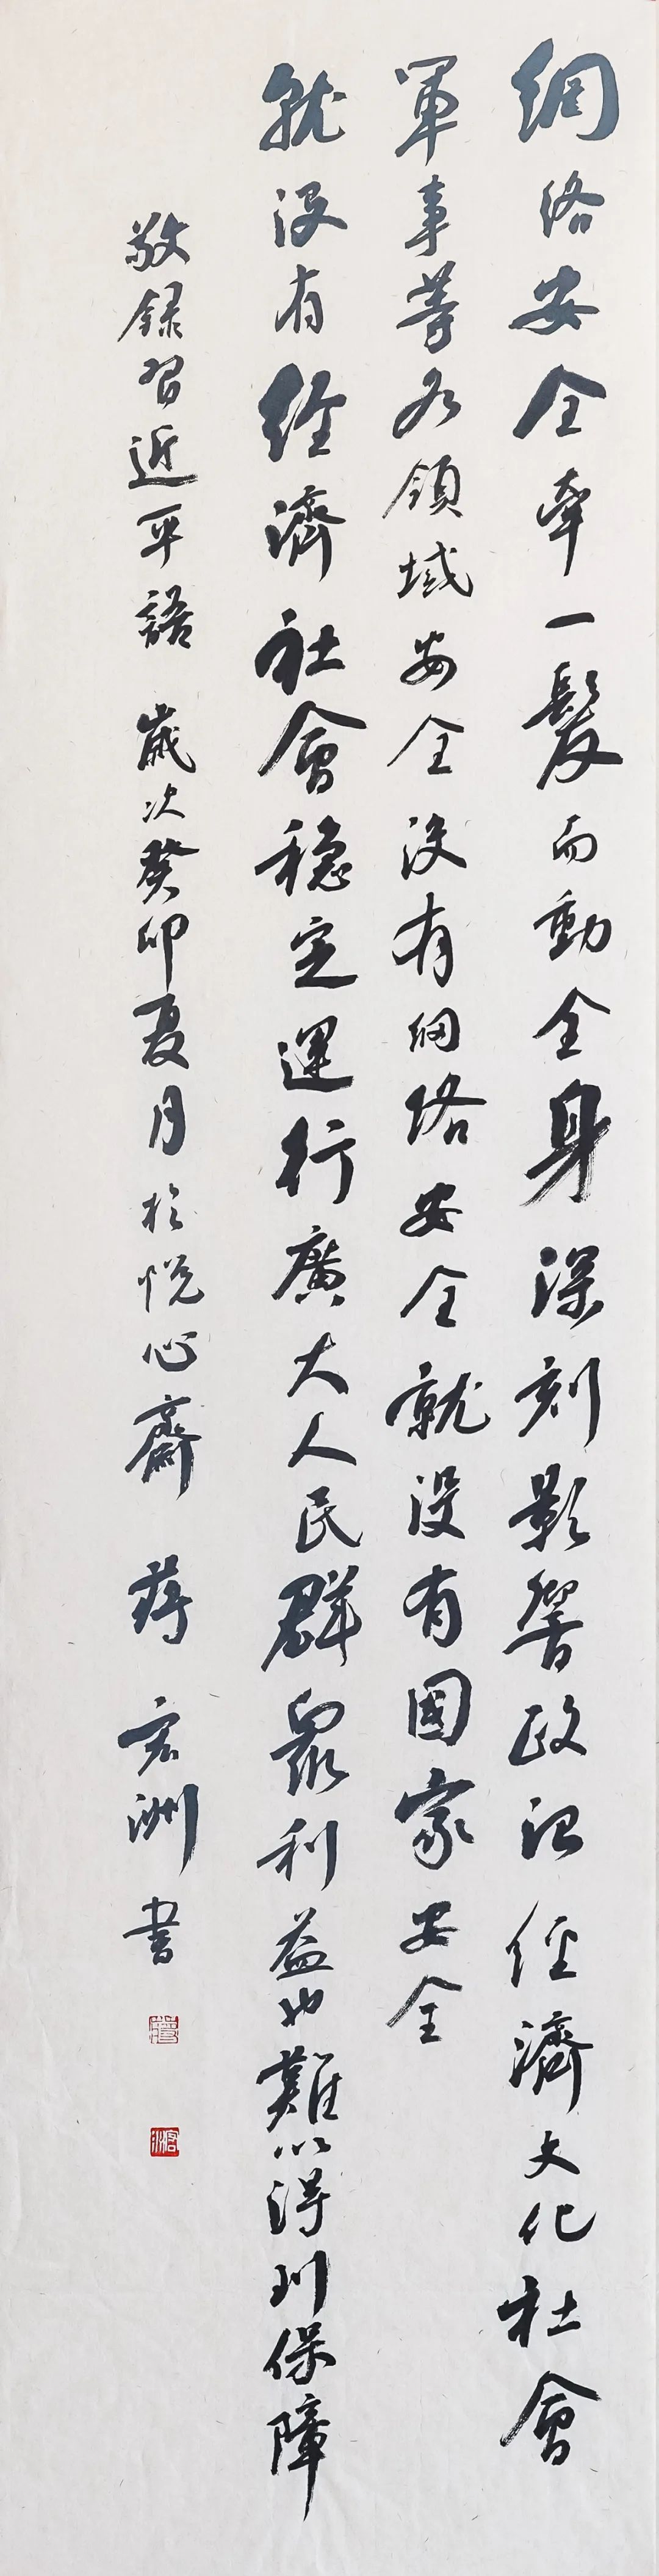 網络安全牽一髮而動全身深刻影響政治經濟文化社會
軍事等各領域安全沒有網络安全就沒有國家安全
就沒有經濟社會穩定運行廣大人民群衆利益也難以得到保障
敬録習近平語 歲次癸卯夏月於悦心齋 蔣宏洲書